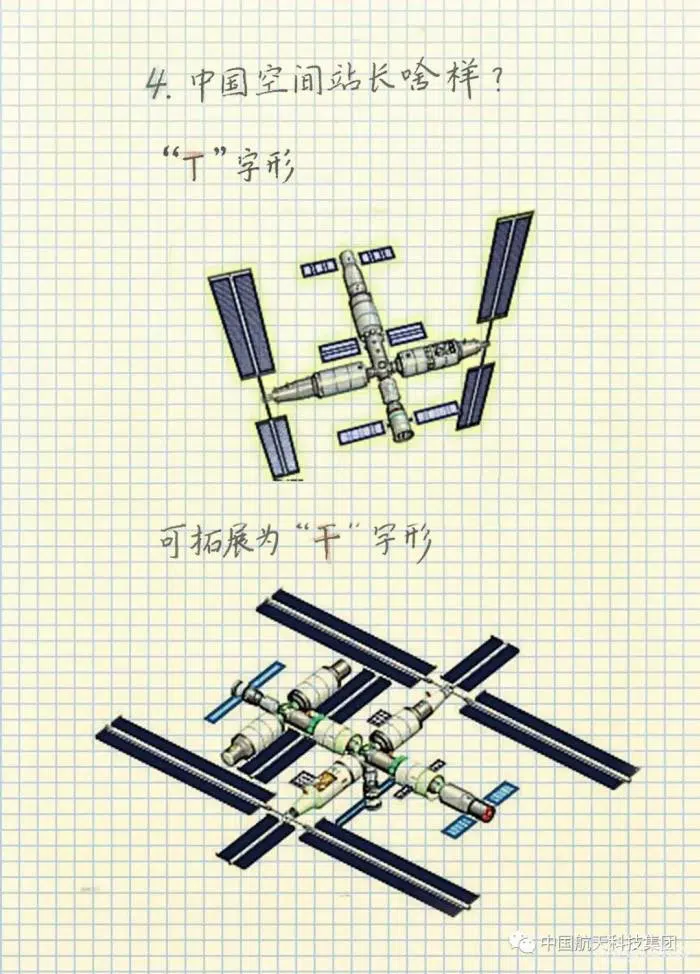 4. 中国空间站长啥样？
“T”字形
可拓展为“干”字形
中国航天科技集团